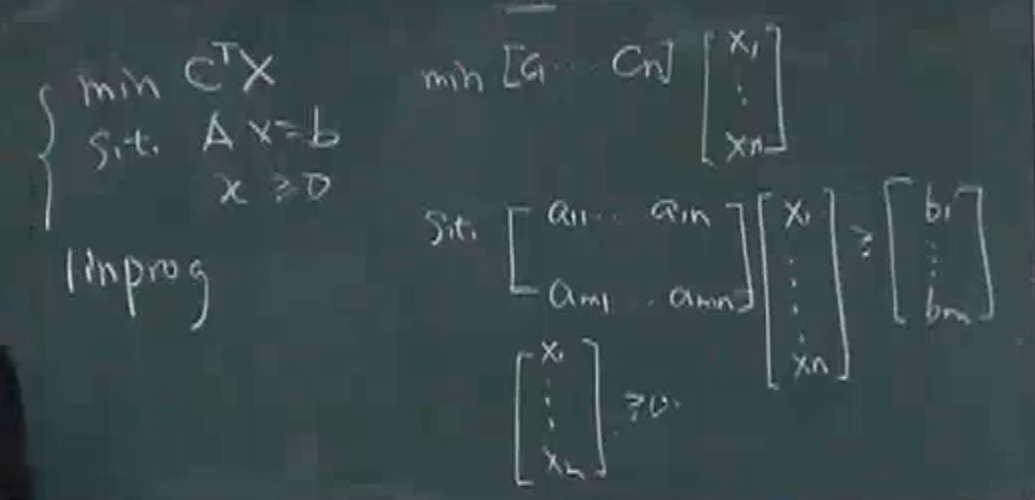 min CᵀX
s.t. Ax=b
x ≥0
linprog
min [C₁ ... Cn] [x₁ ⋮ xn]
s.t. [a₁₁ ... a₁n
am₁ ... amn] [x₁ ⋮ xn] ≥ [b₁ ⋮ bm]
[x₁ ⋮ xn] ≥0.